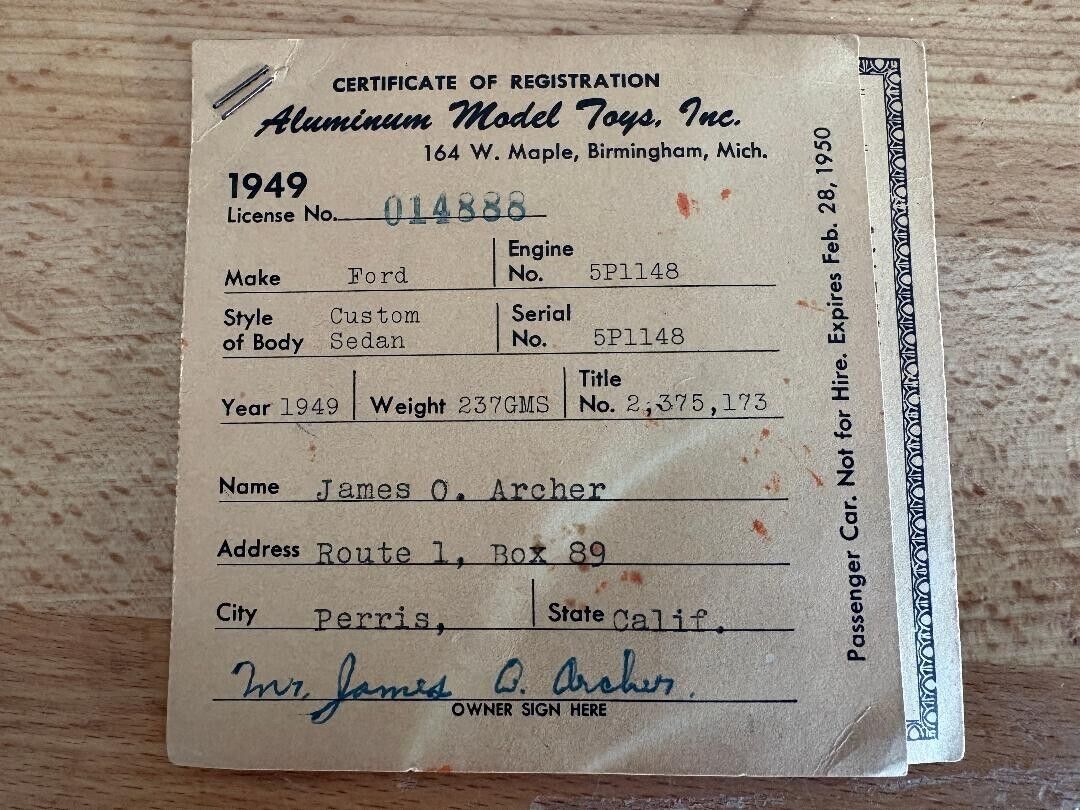 CERTIFICATE OF REGISTRATION
Aluminum Model Toys, Inc.
164 W. Maple, Birmingham, Mich.
1949
License No. 014888
Make Ford
Engine No. 5P1148
Style of Body Custom Sedan
Serial No. 5P1148
Year 1949 Weight 237GMS Title No. 2,375,173
Name James O. Archer
Address Route 1, Box 89
City Perris, State Calif.
Mr. James O. Archer.
OWNER SIGN HERE
Passenger Car. Not for Hire. Expires Feb. 28, 1950